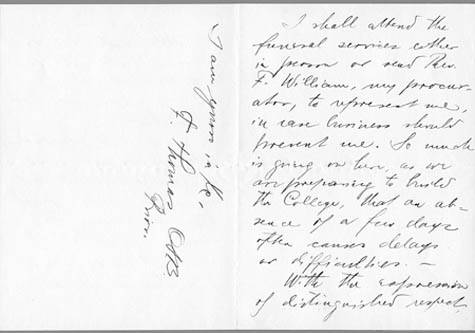 I shall attend the
funeral services either
in person or send Rev.
F. William, my procur-
ator, to represent me,
in case business should
prevent me. So much
is going on here, as we
are preparing to build
the College, that an ab-
sence of a few days
often causes delays
or difficulties. –
With the expression
of distinguished respect,
I am yours in
F. Thomas OSB
Prior.